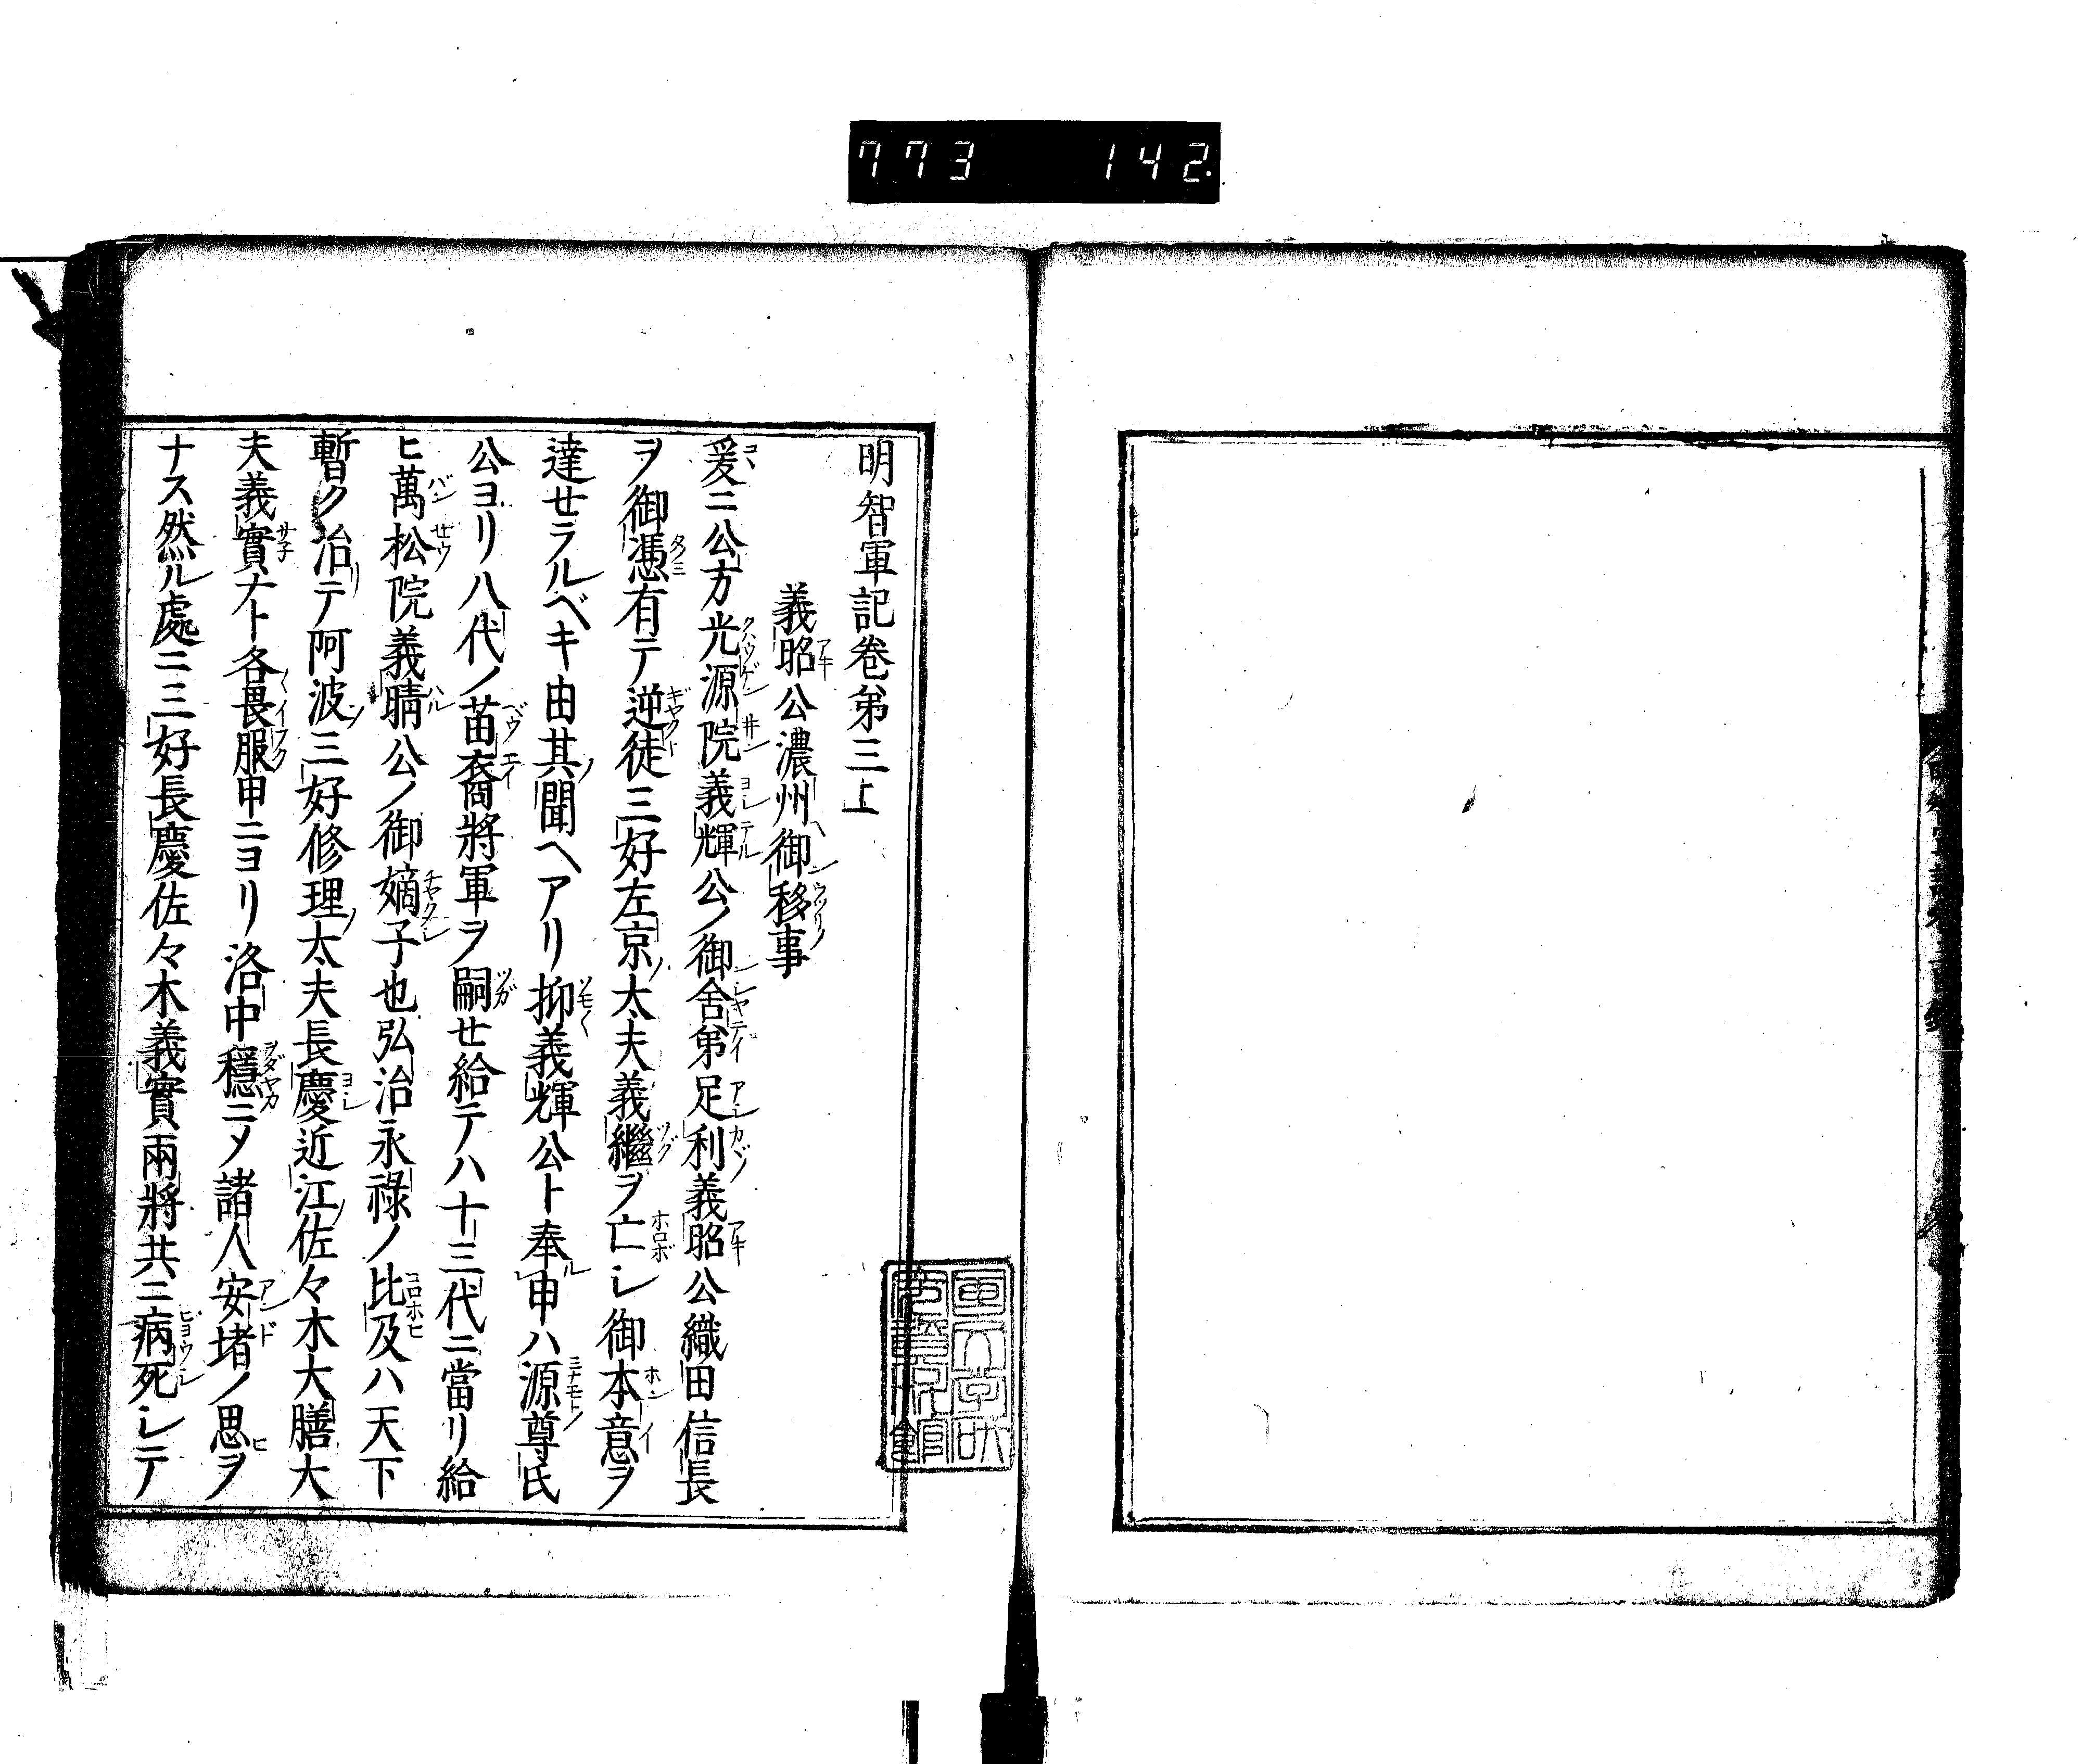 773 142
明智軍記卷第三上
義昭公濃州御移事
爰ニ公方光源院義輝公ノ御舍弟足利義昭公織田信長
ヲ御憑有テ逆徒三好左京太夫義繼ヲ亡シ御本意ヲ
達せラルベキ由其聞ヘアリ抑義輝公ト奉申ハ源尊氏
公ヨリ八代ノ苗裔將軍ヲ嗣せ給テハ十三代ニ當リ給
ヒ萬松院義晴公ノ御嫡子也弘治永祿ノ比及ハ天下
暫ク治テ阿波三好修理太夫長慶近江佐々木大膳大
夫義實ナト各畏服申ニヨリ洛中穩ニメ諸人安堵ノ思ヲ
ナス然ル處ニ三好長慶佐々木義實兩將共ニ病死シテ